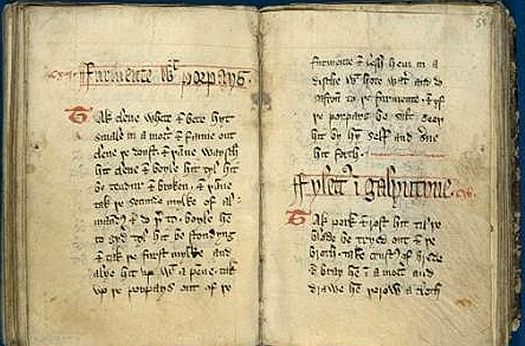 ffurmente wt porpays
Tak clene whete & bete hyt
smale in a mort' & fanne out
clene þe doust, & þane waysch
hit clene & boyle hit tyl hit
be tendur & broken, & þane
tak þe secunde mylke of al-
mandys & do þer to. boyle hem
to gyd' tyl hit be stondyng
& tak þe furst mylke and
alye hit up wt a pene. tak
up þe porpays out of þe
furmente & lesh hem in a
dische wt hote wat' and do
safron to þe furmente. & yf
þe porpays be salt seeþ
hit by hit self and s'ue
hit forth.
ffylett' i galyntyne
Tak pork & rost hit til þe
blode be tryed out & þe
broth. take crustys of brede
& bray hem i a mort' and
drawe hem þorow a cloth